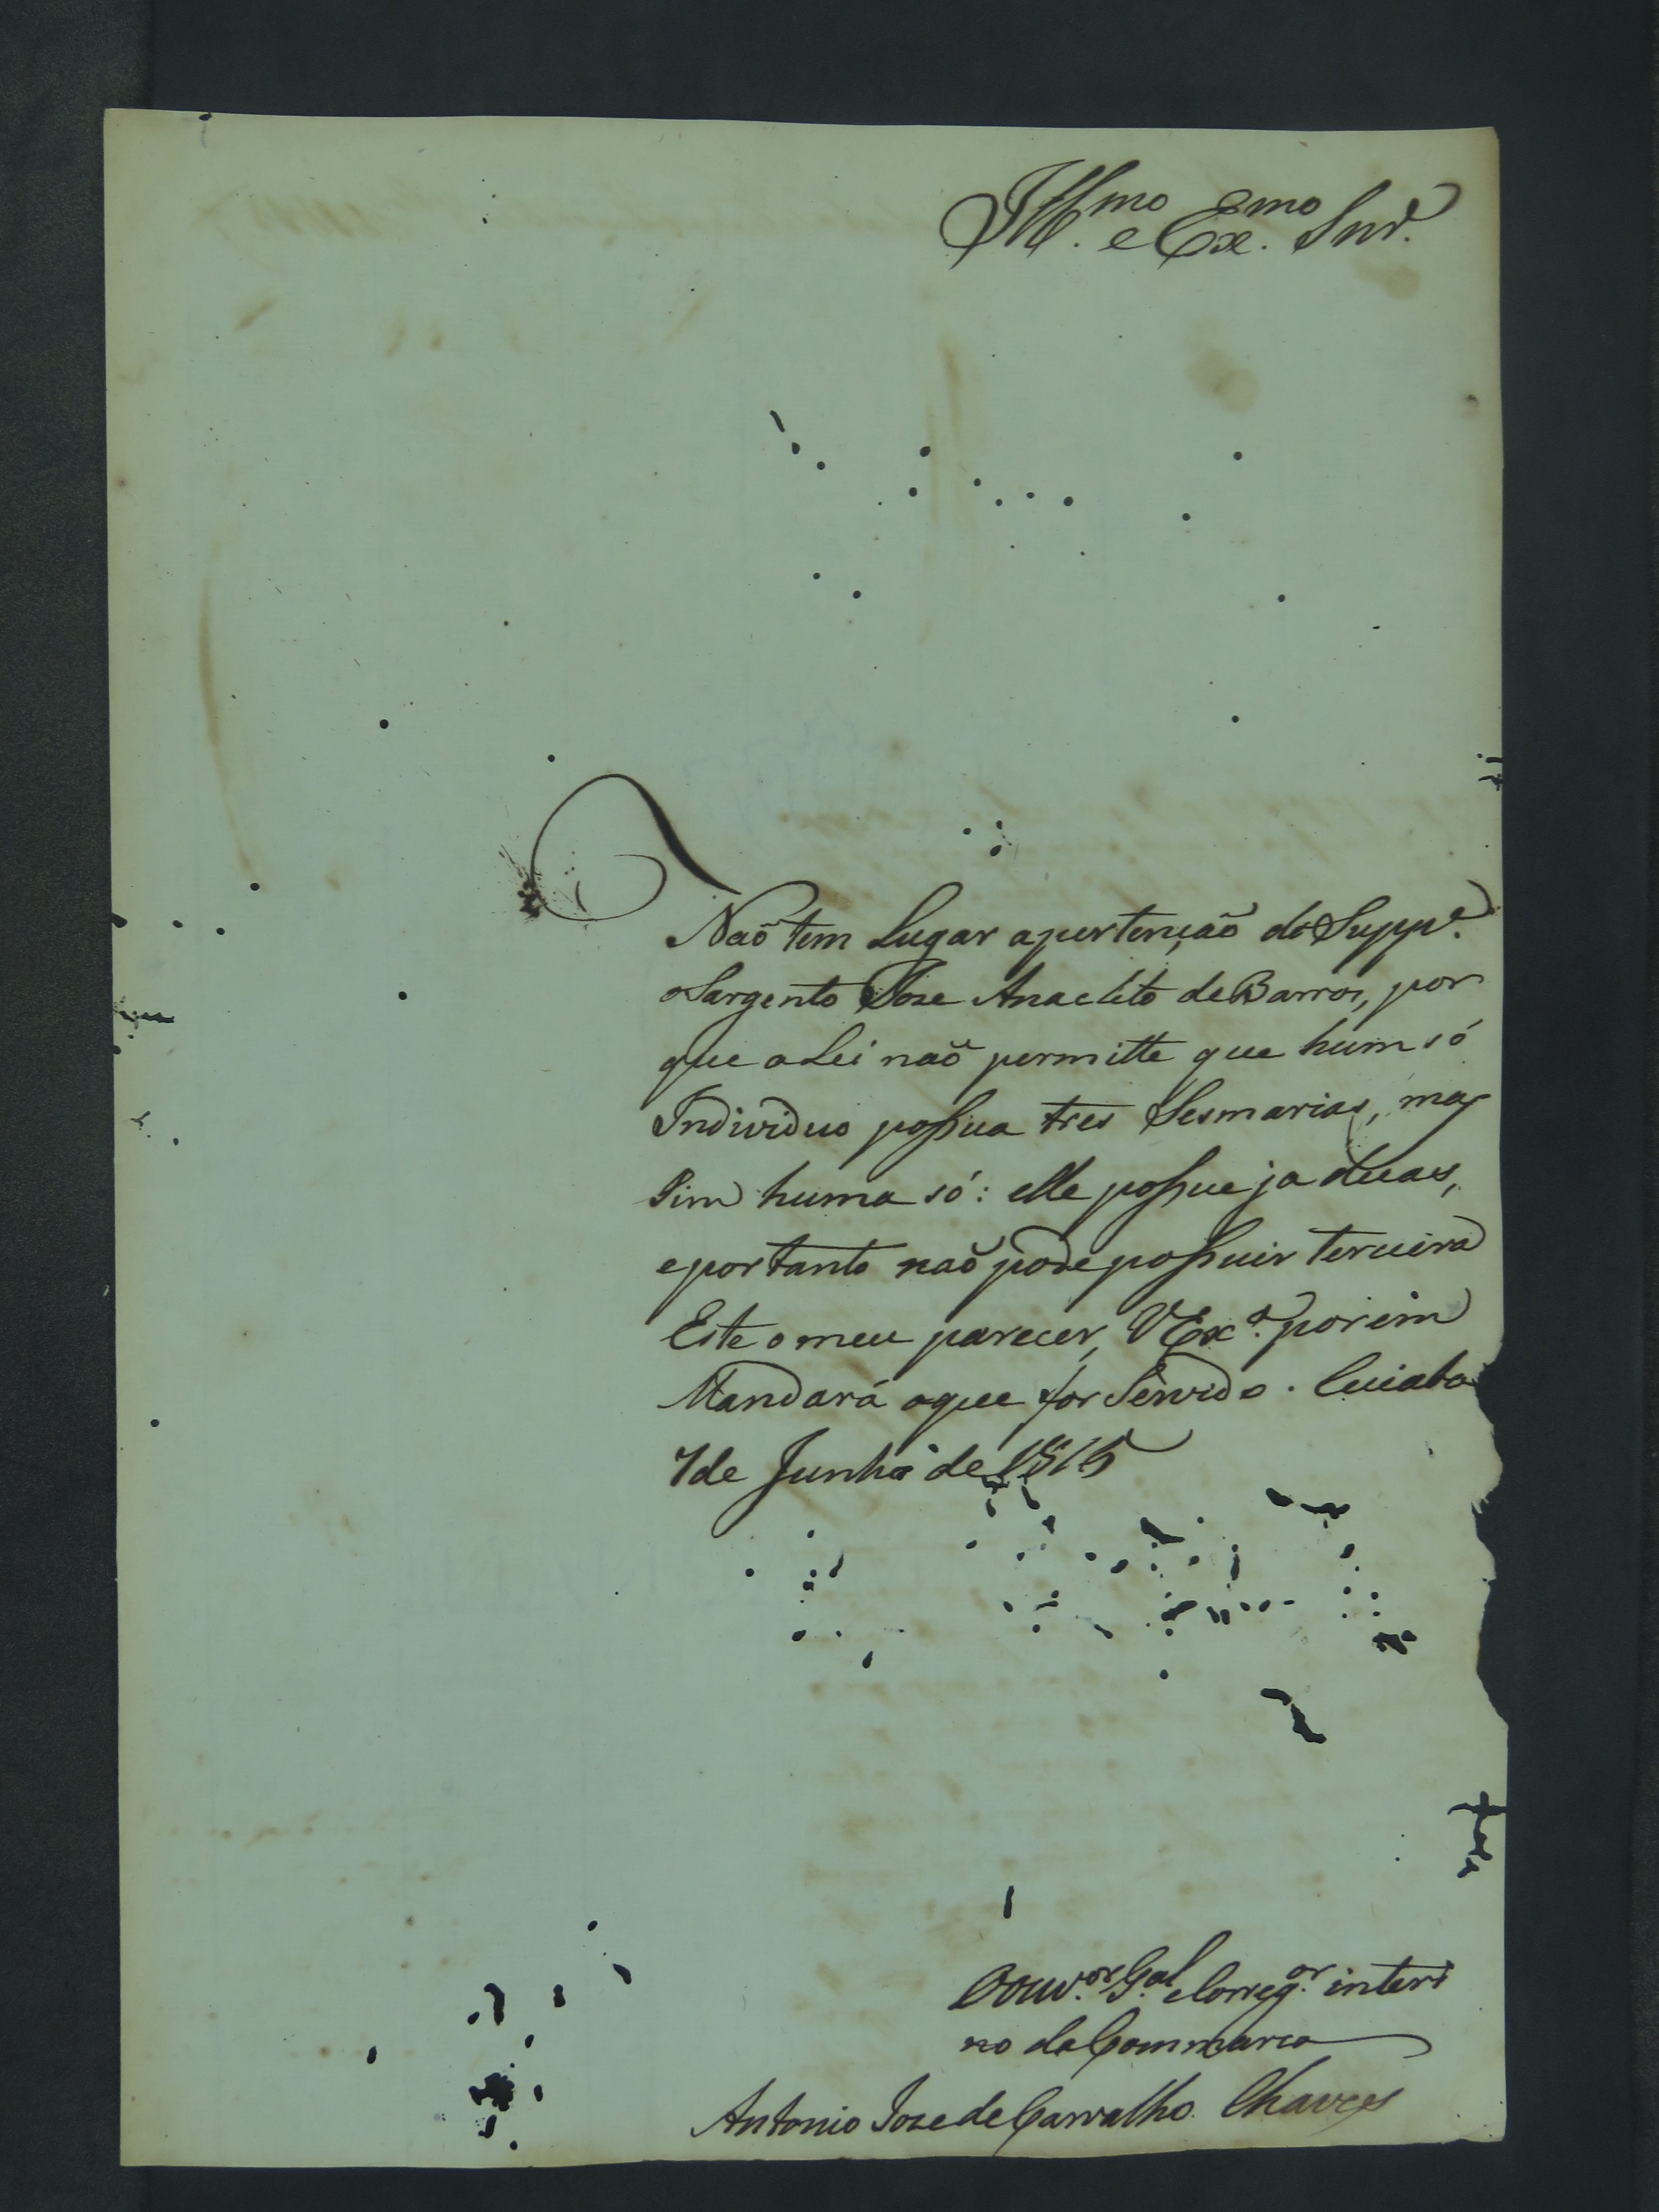 Ill.mo e Ex.mo Snr.
Naõ tem Lugar apertençaõ do Supp.e
o Sargento Joze Anacleto de Barros, por
que a Lei naõ permitte que hum só
Individuo poßua tres Sesmarias, mas
Sim huma só: elle poßue ja duas,
eportanto naõ pode poßuir terceira
Este o meu parecer, VEx.a porem
Mandará oque for Servido. Cuiaba
7 de Junho de 1815
O Ouv.or G.al e Correg.or interi
no da Commarca
Antonio Joze de Carvalho Chaves